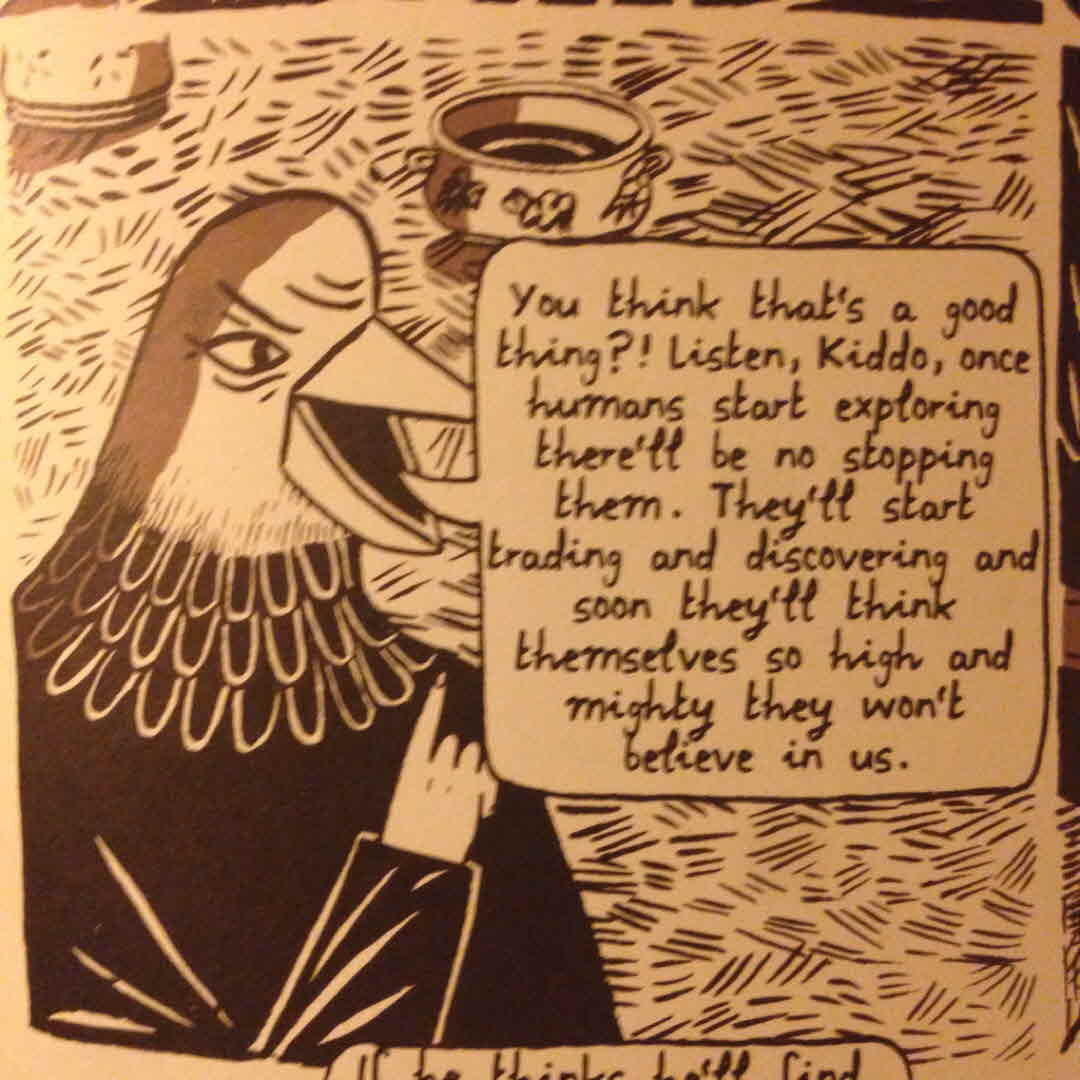 You think that's a good
thing?! Listen, Kiddo, once
humans start exploring
there'll be no stopping
them. They'll start
trading and discovering and
soon they'll think
themselves so high and
mighty they won't
believe in us.
If he thinks he'll find